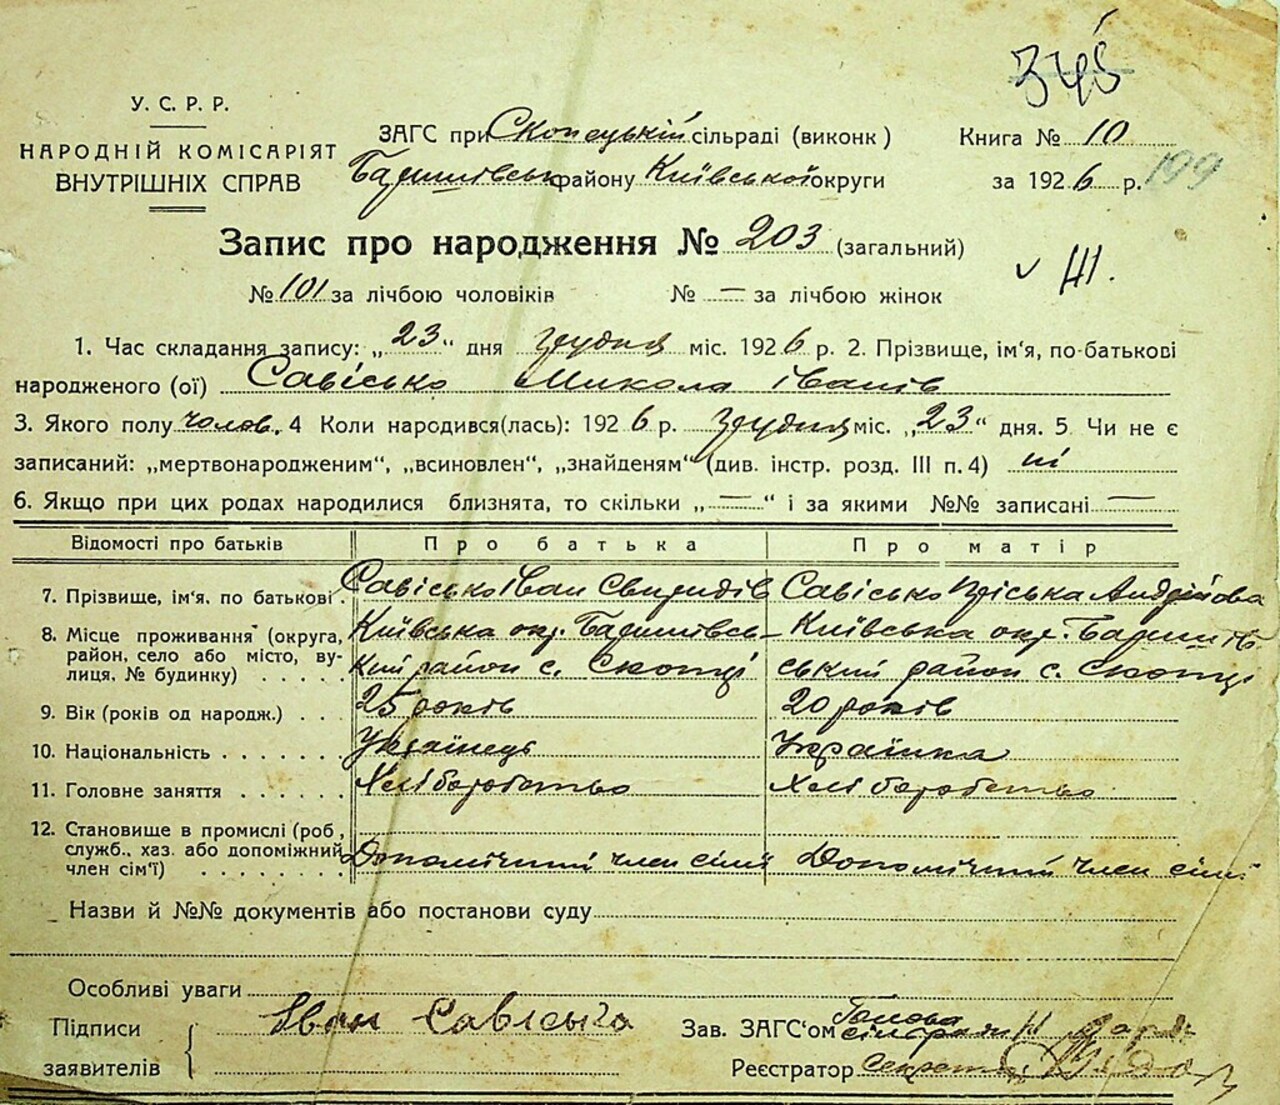 345
У. С. Р. Р.
НАРОДНІЙ КОМІСАРІЯТ
ВНУТРІШНІХ СПРАВ
ЗАГС при Скопецькій сільраді (виконк )
Баришівськ району Київської округи
Книга № 10
за 1926 р. 199
Запис про народження № 203 (загальний)
№ 101 за лічбою чоловіків № — за лічбою жінок
1. Час складання запису: „23“ дня грудня міс. 1926 р. 2. Прізвище, ім'я, по-батькові
народженого (ої) Савісько Микола Іванів
3. Якого полу чолов. 4 Коли народився(лась): 1926 р. грудня міс. „23“ дня. 5. Чи не є
записаний: „мертвонародженим“, „всиновлен“, „знайденям“ (див. інстр. розд. III п. 4) ні
6. Якщо при цих родах народилися близнята, то скільки „—“ і за якими №№ записані —
Відомості про батьків Про батька Про матір
7. Прізвище, ім'я, по батькові. Савісько Іван Свиридів Савісько Пріська Андрійова
8. Місце проживання (округа, район, село або місто, вулиця, № будинку) . . . . .
Київська окр. Баришівсь-
кий район с. Скопці
Київська окр. Баришів
ський район с. Скопці
9. Вік (років од народж.) . . . 25 років 20 років
10. Національність . . . . . . Українець Українка
11. Головне заняття . . . . . . Хліборобство Хліборобство
12. Становище в промислі (роб, служб., хаз. або допоміжний член сім'ї) . . . . . . . .
Допомічний член сімї Допомічний член сімї
Назви й №№ документів або постанови суду
Особливі уваги
Підписи
заявителів
Іван Савісько
Зав. ЗАГС'ом Голова
сільради
Реєстратор секретар